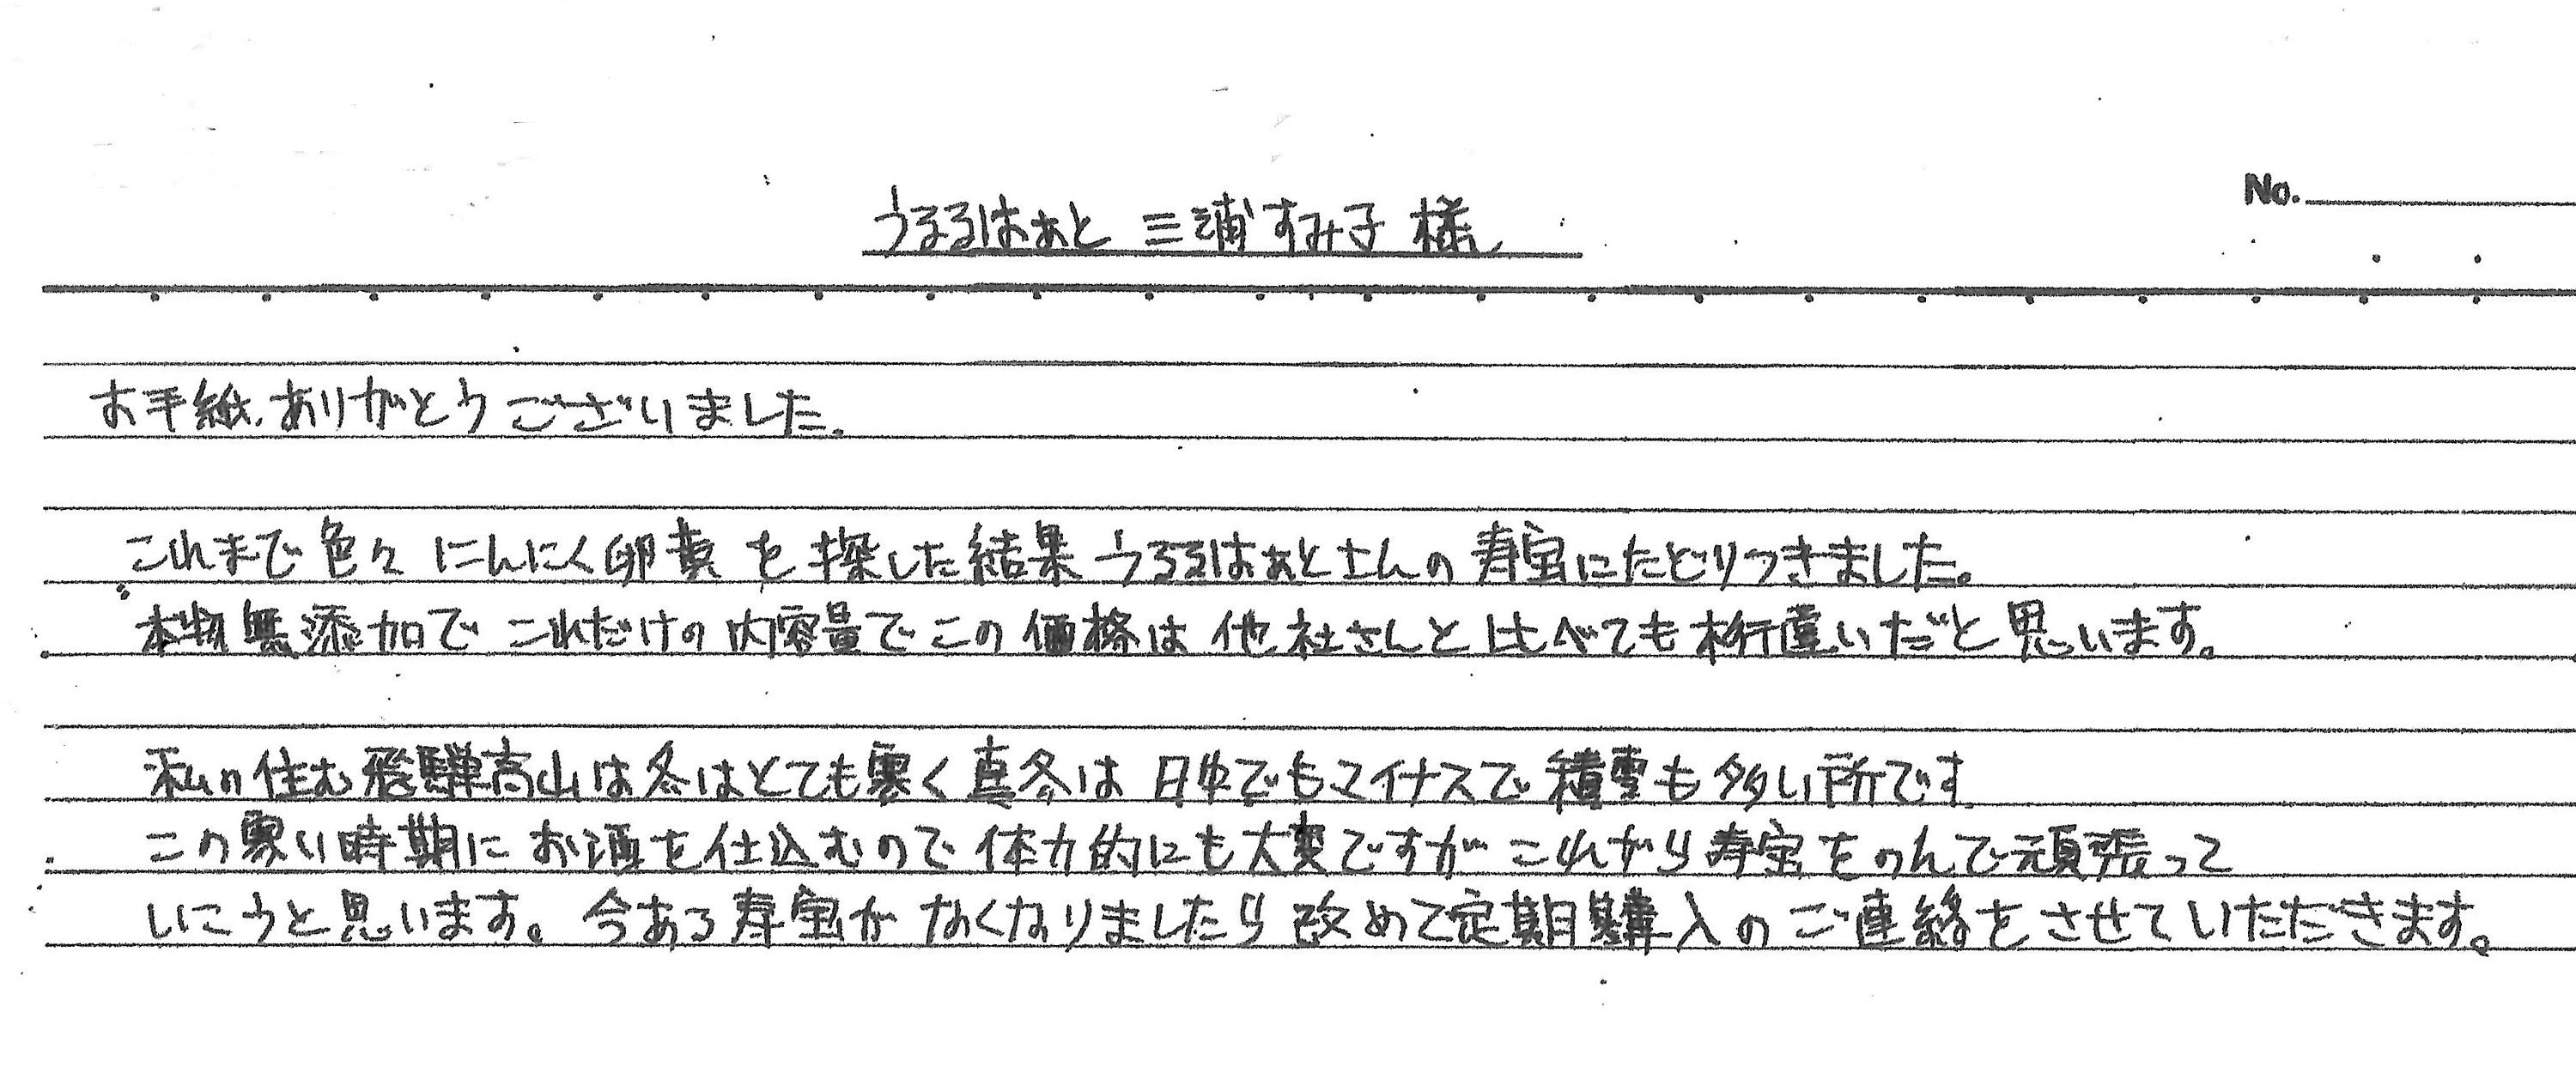 No.
うるるはぁと 三浦すみ子 様
お手紙、ありがとうございました。
これまで色々 にんにく卵黄 を 探した結果 うるるはぁとさんの 寿宝にたどりつきました。
本物無添加で これだけの 内容量で この 価格は 他社さんと 比べても 桁違いだと思います。
私の住む飛騨高山は冬はとても寒く真冬は 日中でもマイナスで積雪も多い所です
この寒い時期に お酒を仕込むので 体力的にも大変ですが これから寿宝をのんで頑張って
いこうと思います。今ある寿宝が なくなりましたら 改めて定期購入のご連絡をさせていただきます。